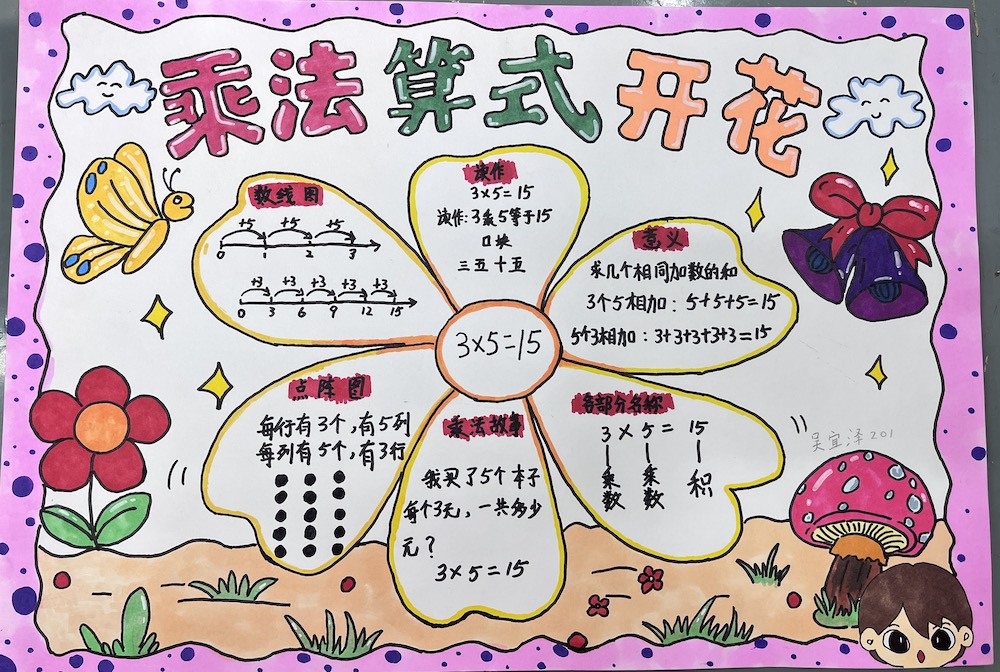 乘法算式开花
读作
3×5=15
读作:3乘5等于15
口块
三五十五
数线图
+5 +5 +5
0 1 2 3
+3 +3 +3 +3 +3
0 3 6 9 12 15
意义
求几个相同加数的和
3个5相加:5+5+5=15
5个3相加:3+3+3+3+3=15
3×5=15
点阵图
每行有3个,有5列
每列有5个,有3行
乘法故事
我买了5个本子
每个3元,一共多少
元?
3×5=15
各部分名称
3×5=15
乘数 乘数 积
吴宜泽201